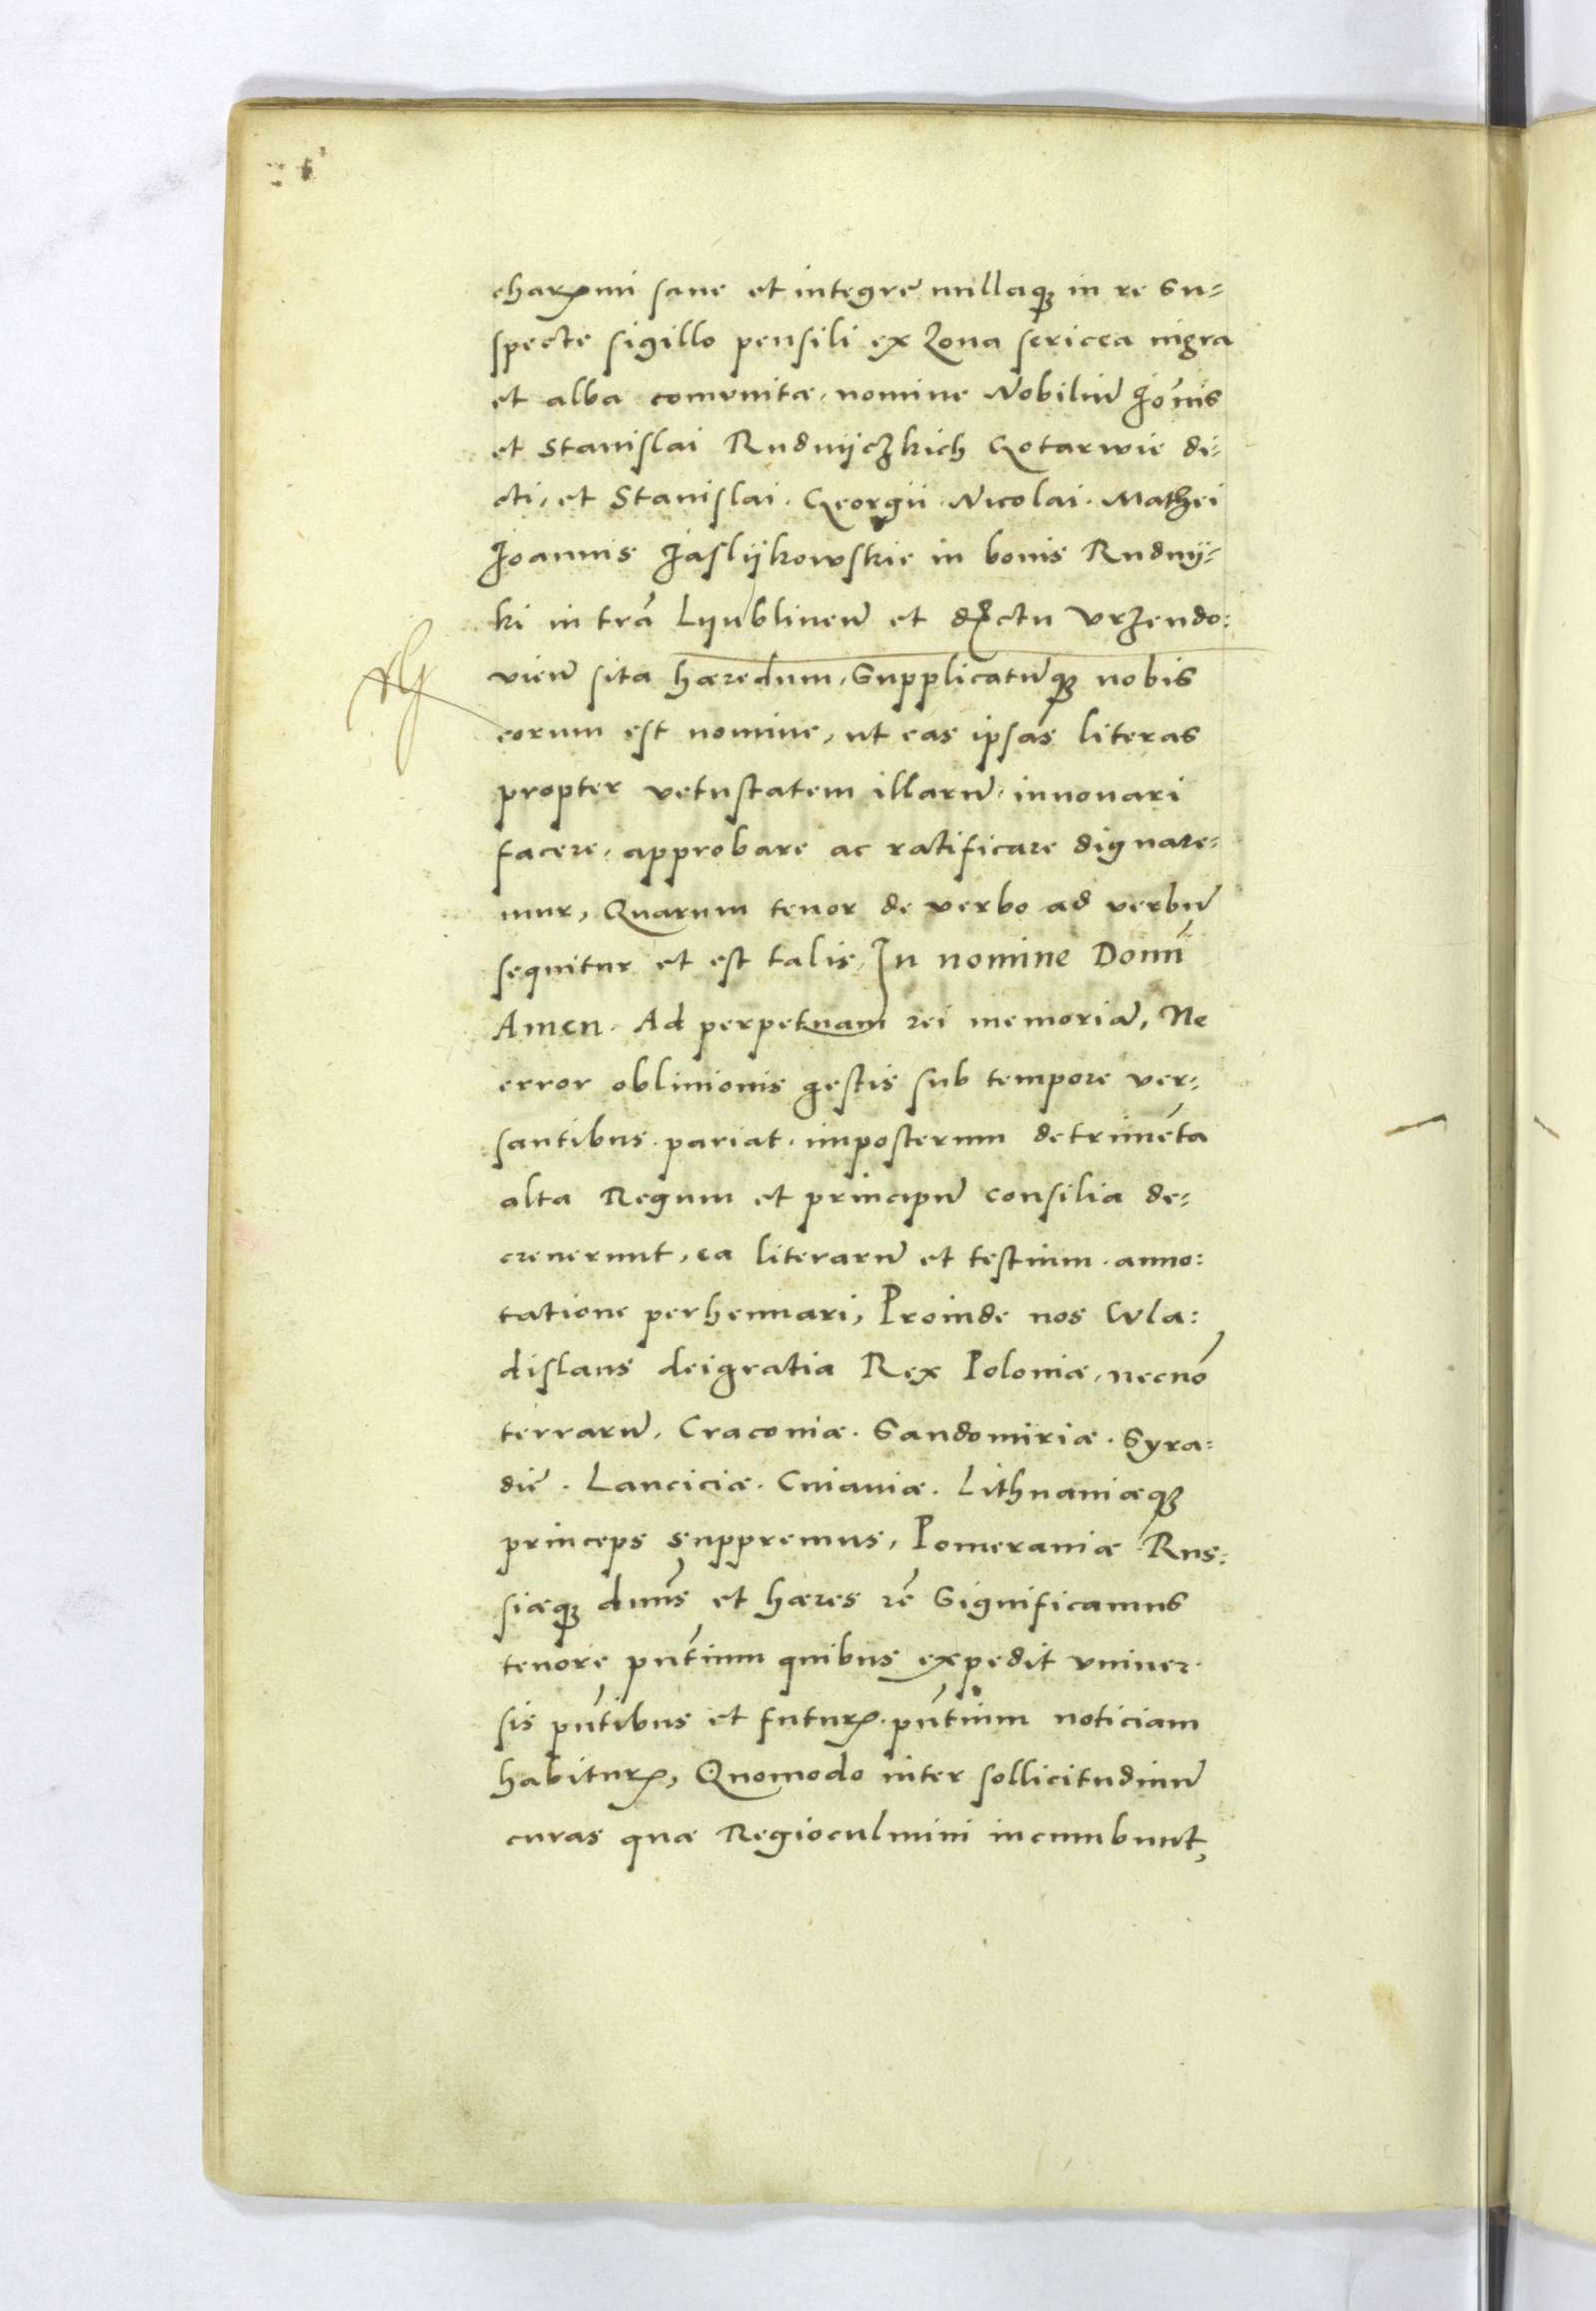 charꝫmi sane et integre nullaqꝫ in re su-
specte sigillo pensili ex zona sericea nigra
et alba comunitæ, nomine Nobiliū Joānis
et Stanislai Rudnijczkich Gotarwie di-
cti, et Stanislai. Georgii. Nicolai. Mathei
Joannis Jaslijkowskie in bonis Rudnij-
ki in trā Lyublineñ et dꝫctu Urzendo:
vieñ sita hæredum, Supplicatūqꝫ nobis
eorum est nomine, ut eas ipsas literas
propter vetustatem illarū, innovari
facere, approbare ac ratificare dignare-
mur, Quarum tenor de verbo ad verbū
sequitur et est talis, In nomine Domī
Amen. Ad perpetuam rei memoriā, Ne
error oblivionis gestis sub tempore ver-
santibus pariat imposterum detrimēta
alta Regum et principū consilia de-
creverunt, ea literarū et testium anno:
tatione perhennari, Proinde nos Wla:
dislaus deigratia Rex Poloniæ, necnō
terrarū, Cracoviæ. Sandomiriæ. Syra-
diē. Lanciciæ. Cuiaviæ. Lithuaniæqꝫ
princeps suppremus, Pomeraniæ Rus-
siæqꝫ dnus et hæres rē Significamus
tenore pntium quibus expedit univer-
sis pntibus et futurꝫ. pntium noticiam
habiturꝫ, Quomodo inter sollicitudinū
curas quæ Regioculmini incumbunt,